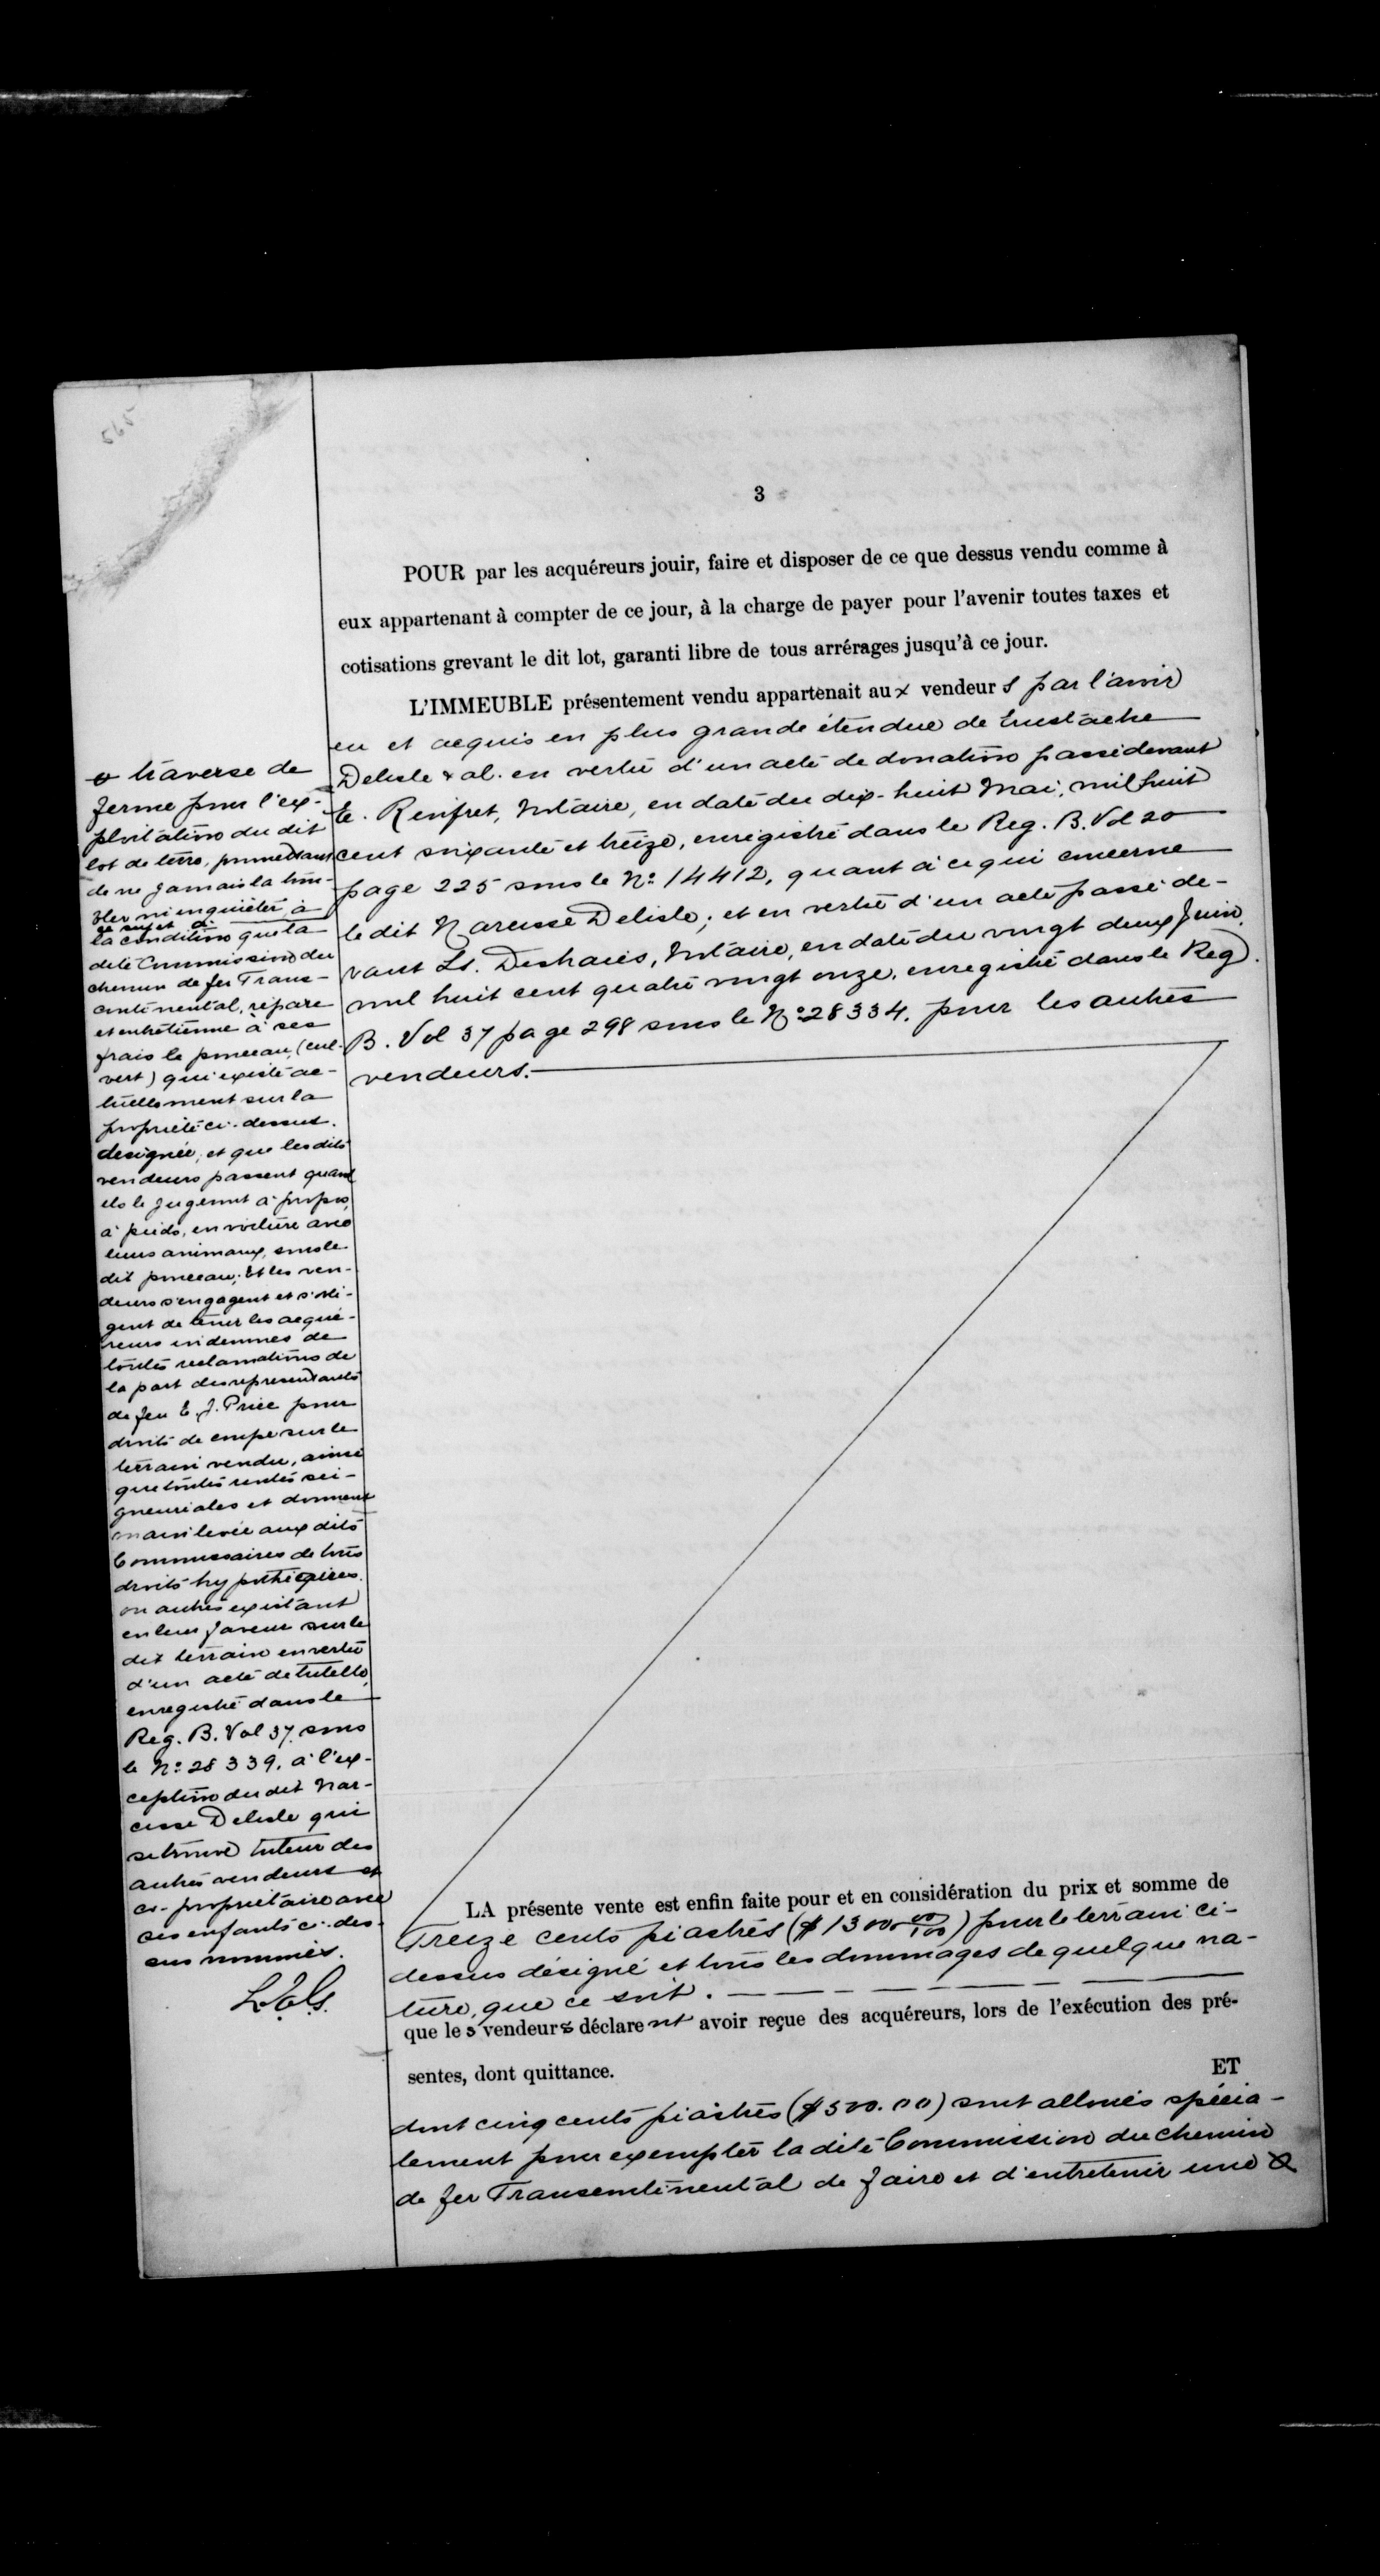 565
3
POUR par les acquéreurs jouir, faire et disposer de ce que dessus vendu comme à
eux appartenant à compter de ce jour, à la charge de payer pour l'avenir toutes taxes et
cotisations grevant le dit lot, garanti libre de tous arrérages jusqu'à ce jour.
L'IMMEUBLE présentement vendu appartenait aux vendeurs par l'avoir
eu et acquis en plus grande étendue de Eustache
Delisle & al. en vertu d'un acte de donation passé devant
E. Renfret, Notaire, en date du dix-huit Mai, mil huit
cent soixante et treize, enregistré dans le Reg. B. Vol 20
page 225 sous le No 14412, quant à ce qui concerne
le dit Narcisse Delisle; et en vertu d'un acte passé de-
vant Ls. Deshaies, Notaire, en date du vingt deux Juin
mil huit cent quatre vingt onze, enregistré dans le Reg.
B. Vol 37 page 298 sous le No 28334. pour les autres
vendeurs.
traverse de
ferme pour l'ex-
ploitation du dit
lot de terre, promettant
de ne jamais la trou-
bler ni inquiéter à
ce sujet à
la condition que la
dite Commission du
chemin de fer Trans-
continental, répare
et entretienne à ses
frais le ponceau, (cul-
vert) qui existe ac-
tuellement sur la
propriété ci-dessus.
designée, et que les dits
vendeurs passent quand
ils le jugeront à propos,
à pieds, en voiture avec
leurs animaux, sous le
dit ponceau; Et les ven-
deurs s'engagent et s'obli-
gent de tenir les acqué-
reurs indemnes de
toutes reclamations de
la part des representants
de feu E. J. Price pour
droits de coupe sur le
terrain vendu, ainsi
que toutes rentes sei-
gneuriales et donnent
main levée aux dits
Commissaires de tous
droits hypothécaires
ou autres existant
en leur faveur sur le
dit terrain en vertu
d'un acte de tutelle,
enregistré dans le
Reg. B. Vol 37. sous
le No 28339. à l'ex-
ception du dit Nar-
cisse Delisle qui
se trouve tuteur des
autres vendeurs et
co-propriétaire avec
ses enfants ci-des-
sus nommés.
LA présente vente est enfin faite pour et en considération du prix et somme de
Treize cents piastres ($1300 00/100) pour le terrain ci-
dessus désigné et tous les dommages de quelque na-
ture, que ce soit.
que les vendeurs déclarent avoir reçue des acquéreurs, lors de l'exécution des pré-
sentes, dont quittance. ET
dont cinq cents piastres ($500.00) sont alloués spécia-
lement pour exempter la dite Commission du chemin
de fer Transcontinental de faire et d'entretenir une